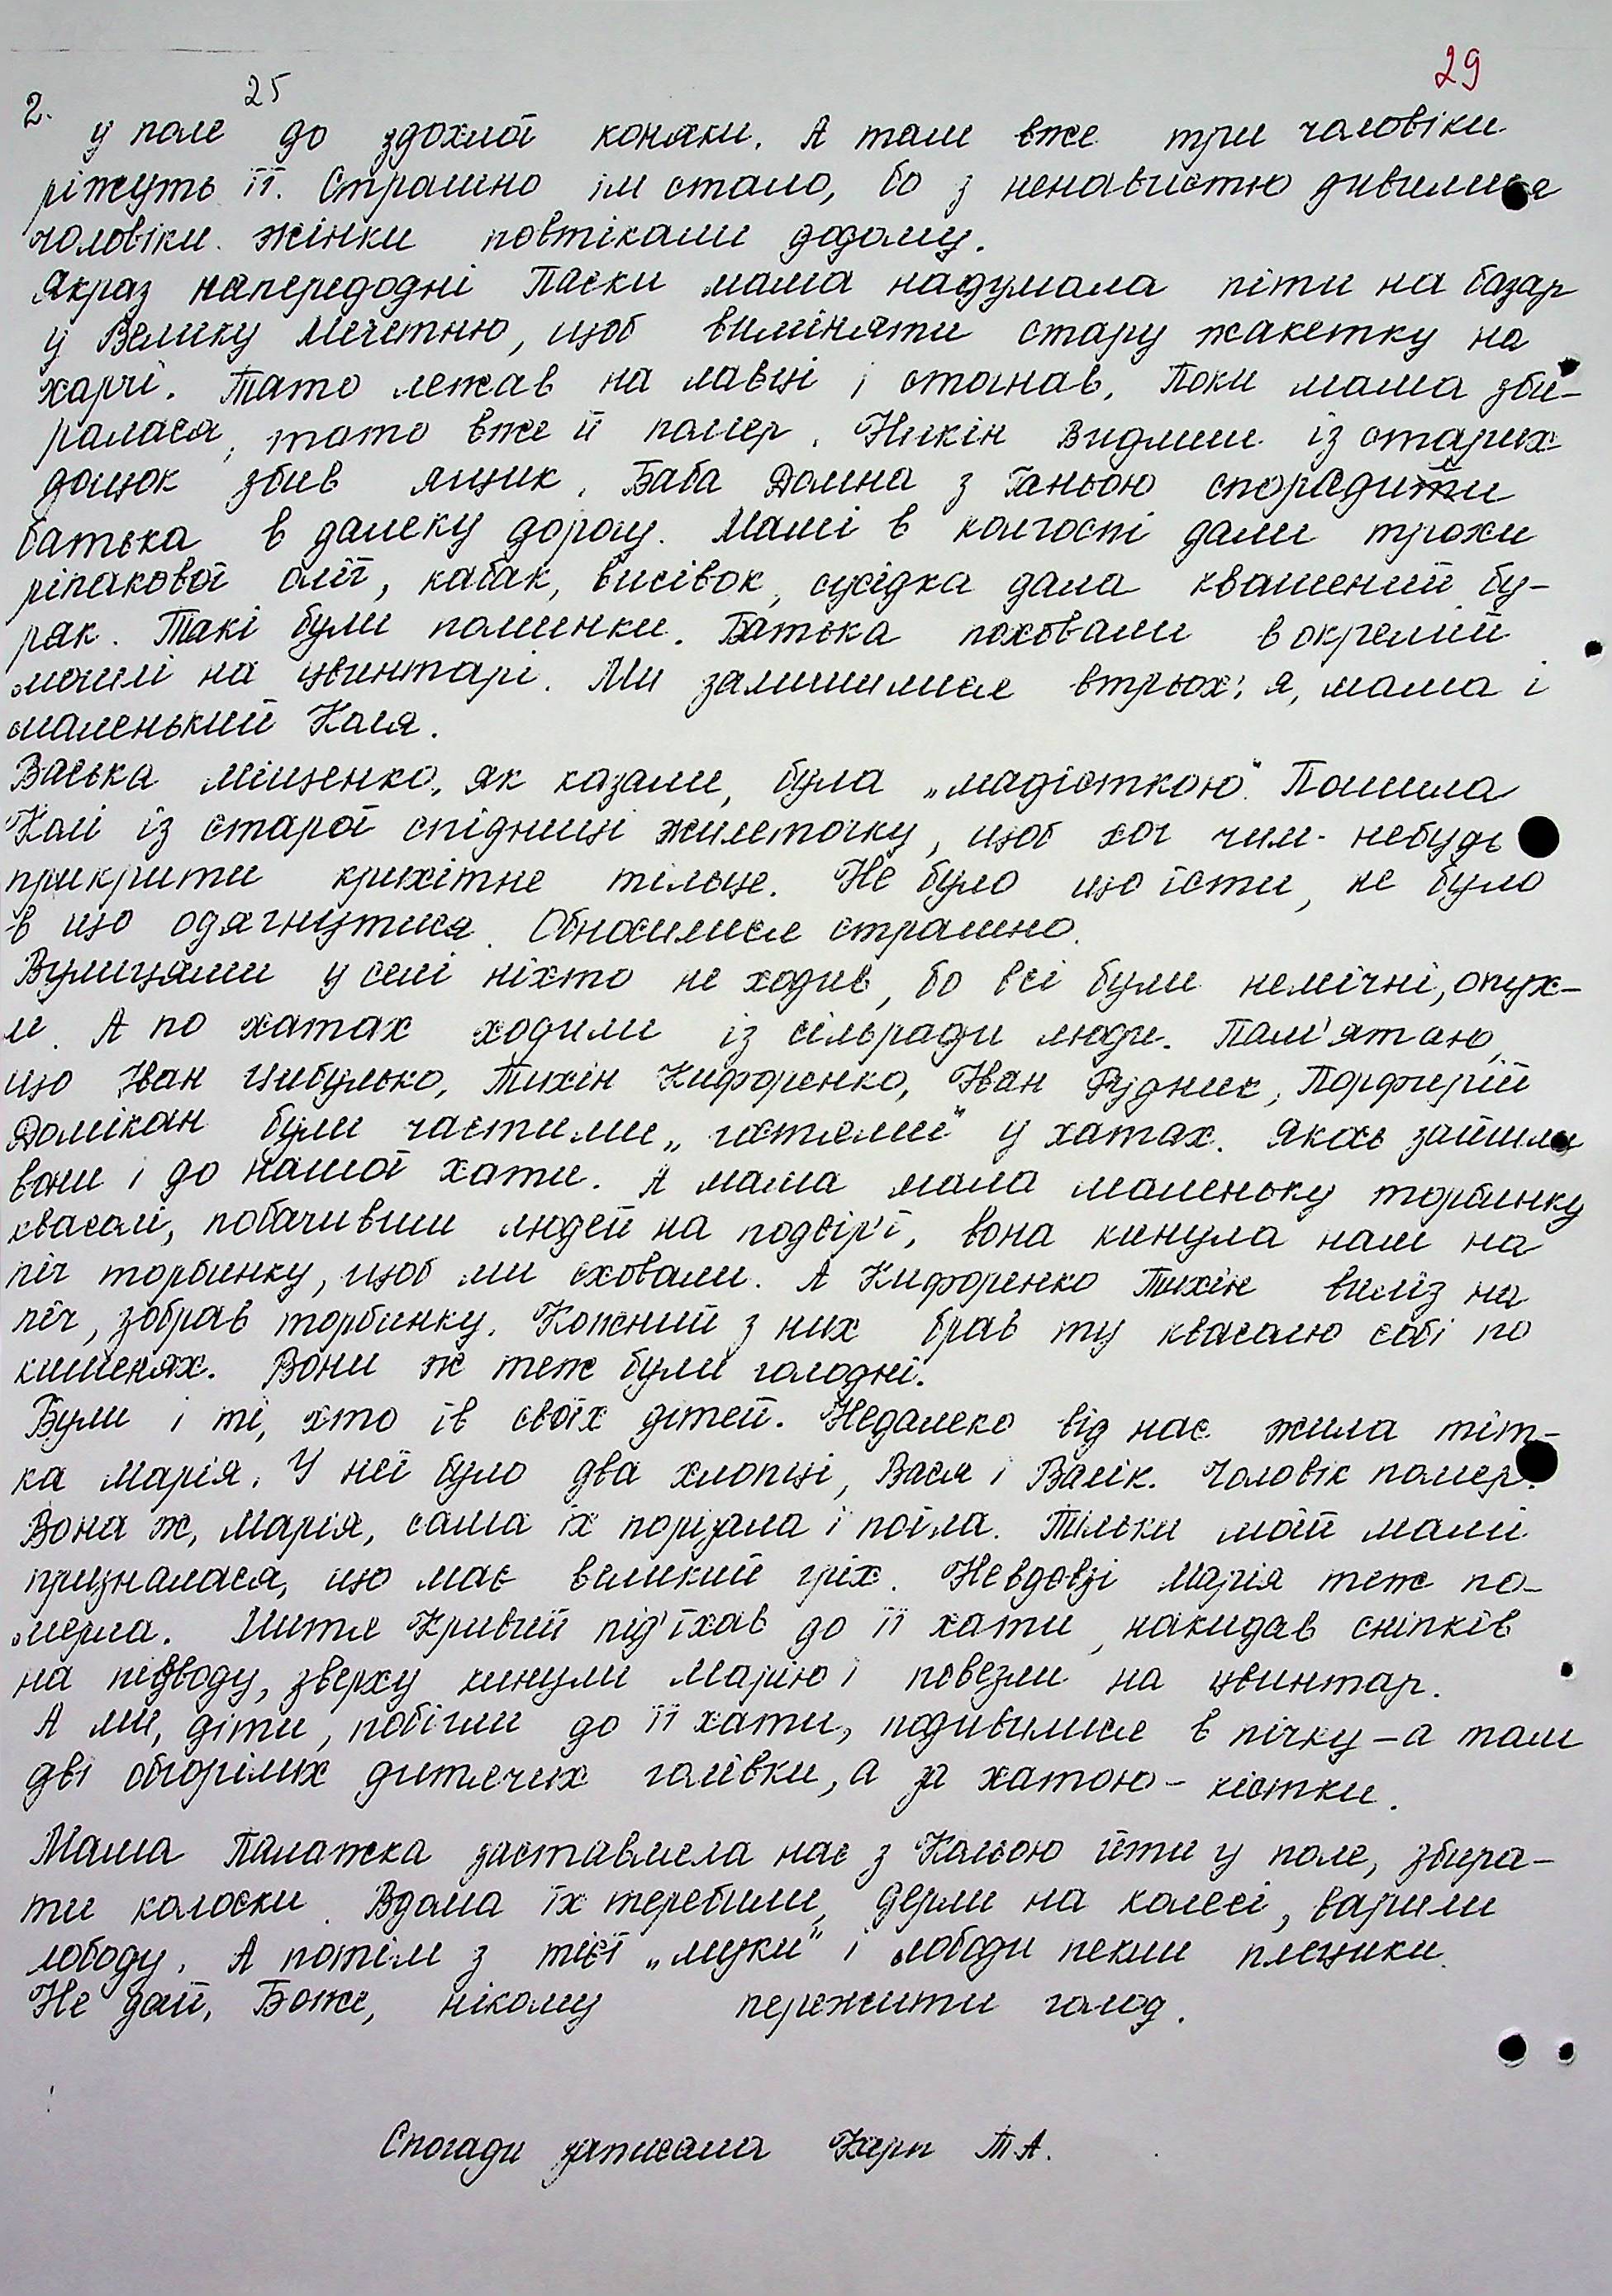 29
25
2.
у поле до здохлої коняки. А там вже три чоловіки
ріжуть її. Страшно їм стало, бо з ненавистю дивилися
чоловіки. Жінки повтікали додому.
Якраз напередодні Паски мама надумала піти на базар
у Велику Мечетню, щоб виміняти стару жакетку на
харчі. Тато лежав на лавці і стогнав. Поки мама зби-
ралася, тато вже й помер. Никін Видлиш із старих
дощок збив ящик. Баба Домна з Ганьою спорядили
батька в далеку дорогу. Мамі в колгоспі дали трохи
ріпакової олії, кабак, висівок, сусідка дала квашений бу-
ряк. Такі були поминки. Батька поховали в окремій
могилі на цвинтарі. Ми залишилися втрьох: я, мама і
маленький Коля.
Васька Міщенко, як казали, була „модісткою". Пошила
Колі із старої спідниці жилеточку, щоб хоч чим-небудь
прикрити крихітне тільце. Не було що їсти, не було
в що одягнутися. Обносилися страшно.
Вулицями у селі ніхто не ходив, бо всі були немічні, опух-
лі. А по хатах ходили із сільради люди. Пам'ятаю,
що Іван Цибулько, Тихін Кифоренко, Іван Рудник, Порфирій
Домікан були частими „гостями" у хатах. Якось зайшли
вони і до нашої хати. А мама мала маленьку торбинку
квасолі, побачивши людей на подвір'ї, вона кинула нам на
піч торбинку, щоб ми сховали. А Кифоренко Тихін виліз на
піч, забрав торбинку. Кожний з них брав ту квасолю собі по
кишенях. Вони ж теж були голодні.
Були і ті, хто їв своїх дітей. Недалеко від нас жила тіт-
ка Марія. У неї було два хлопці, Вася і Валік. Чоловік помер.
Вона ж, Марія, сама їх порізала і поїла. Тільки моїй мамі
призналася, що має великий гріх. Невдовзі Марія теж по-
мерла. Митя Кривий під'їхав до її хати, накидав сніпків
на підводу, зверху кинули Марію і повезли на цвинтар.
А ми, діти, побігли до її хати, подивилися в пічку – а там
дві обгорілих дитячих голівки, а за хатою – кістки.
Мама Палажка заставляла нас з Кольою йти у поле, збира-
ти колоски. Вдома їх теребили, дерли на колесі, варили
лободу. А потім з тієї „муки" і лободи пекли плецики.
Не дай, Боже, нікому пережити голод.
Спогади записала Карп Т.А.